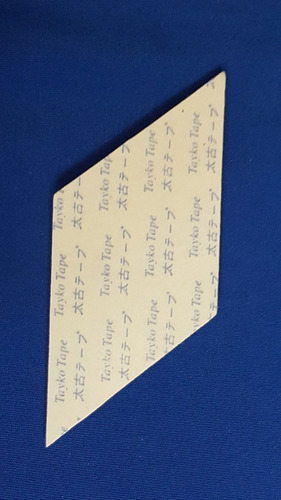 Tayko Tape Tayko Tape Tayko T
太古テープ 太古テープ 太古テー
Tayko Tape Tayko Tape Tayko Tap
太古テープ 太古テープ 太古テープ
Tayko Tape Tayko Tape Tayko Tape
太古テープ 太古テープ 太古テープ
ko Tape Tayko Tape Tayko Tape
テープ 太古テープ 太古テープ